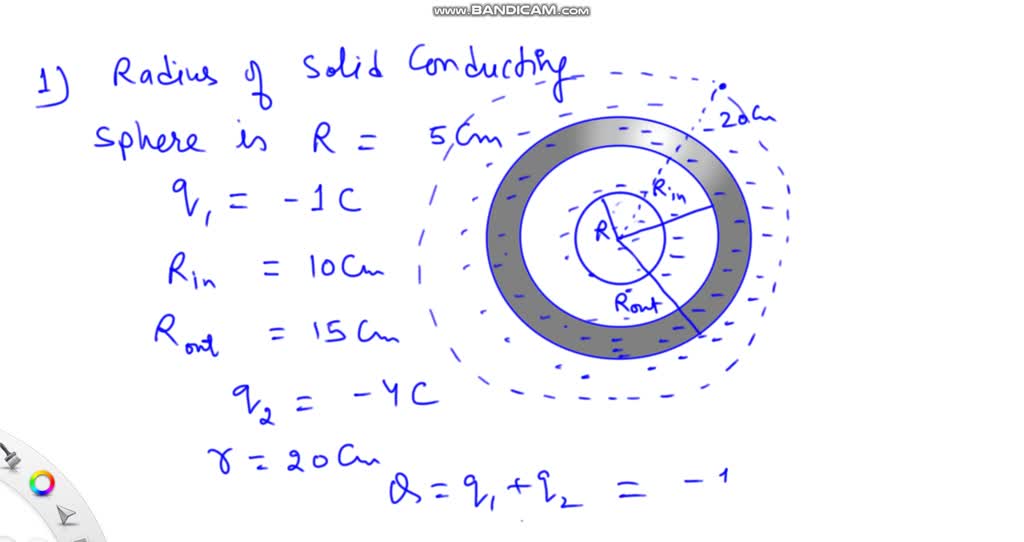 www.BANDICAM.com
1) Radius of Solid Conducting
Sphere is R = 5 Cm
q₁ = -1C
Rin = 10 Cm
Rout = 15 Cm
q₂ = -4C
r = 20 Cm
Q = q₁ + q₂ = -1
20 Cm
Rin
R
Rout